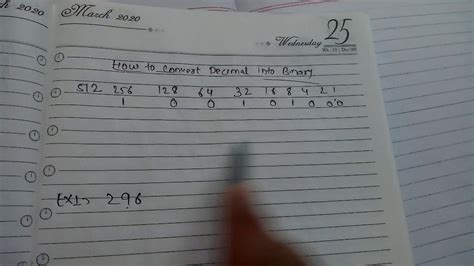 March 2020
March 2020
25
Wednesday
How to convert Decimal into Bnary
512 256 128 64 32 16 8 4 2 1
1 0 0 1 0 1 0 0 0
Ex1:- 296